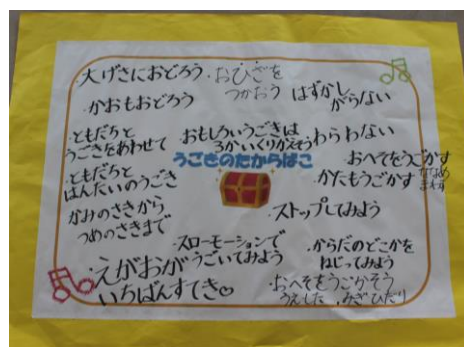 ・大げさにおどろう
・おひざを
つかおう
はずかし
がらない
・かおもおどろう
・ともだちと
うごきをあわせて
おもしろいうごきは
3かいくりかえそう
わらわない
うごきのたからばこ
・ともだちと
はんたいのうごき
・おへそをうごかす
かたもうごかす
ななめ
まわす
かみのさきから
つめのさきまで
・ストップしてみよう
・スローモーションで
うごいてみよう
・からだのどこかを
ねじってみよう
・えがおが
いちばんすてき♡
・おへそをうごかそう
うえした,みぎひだり